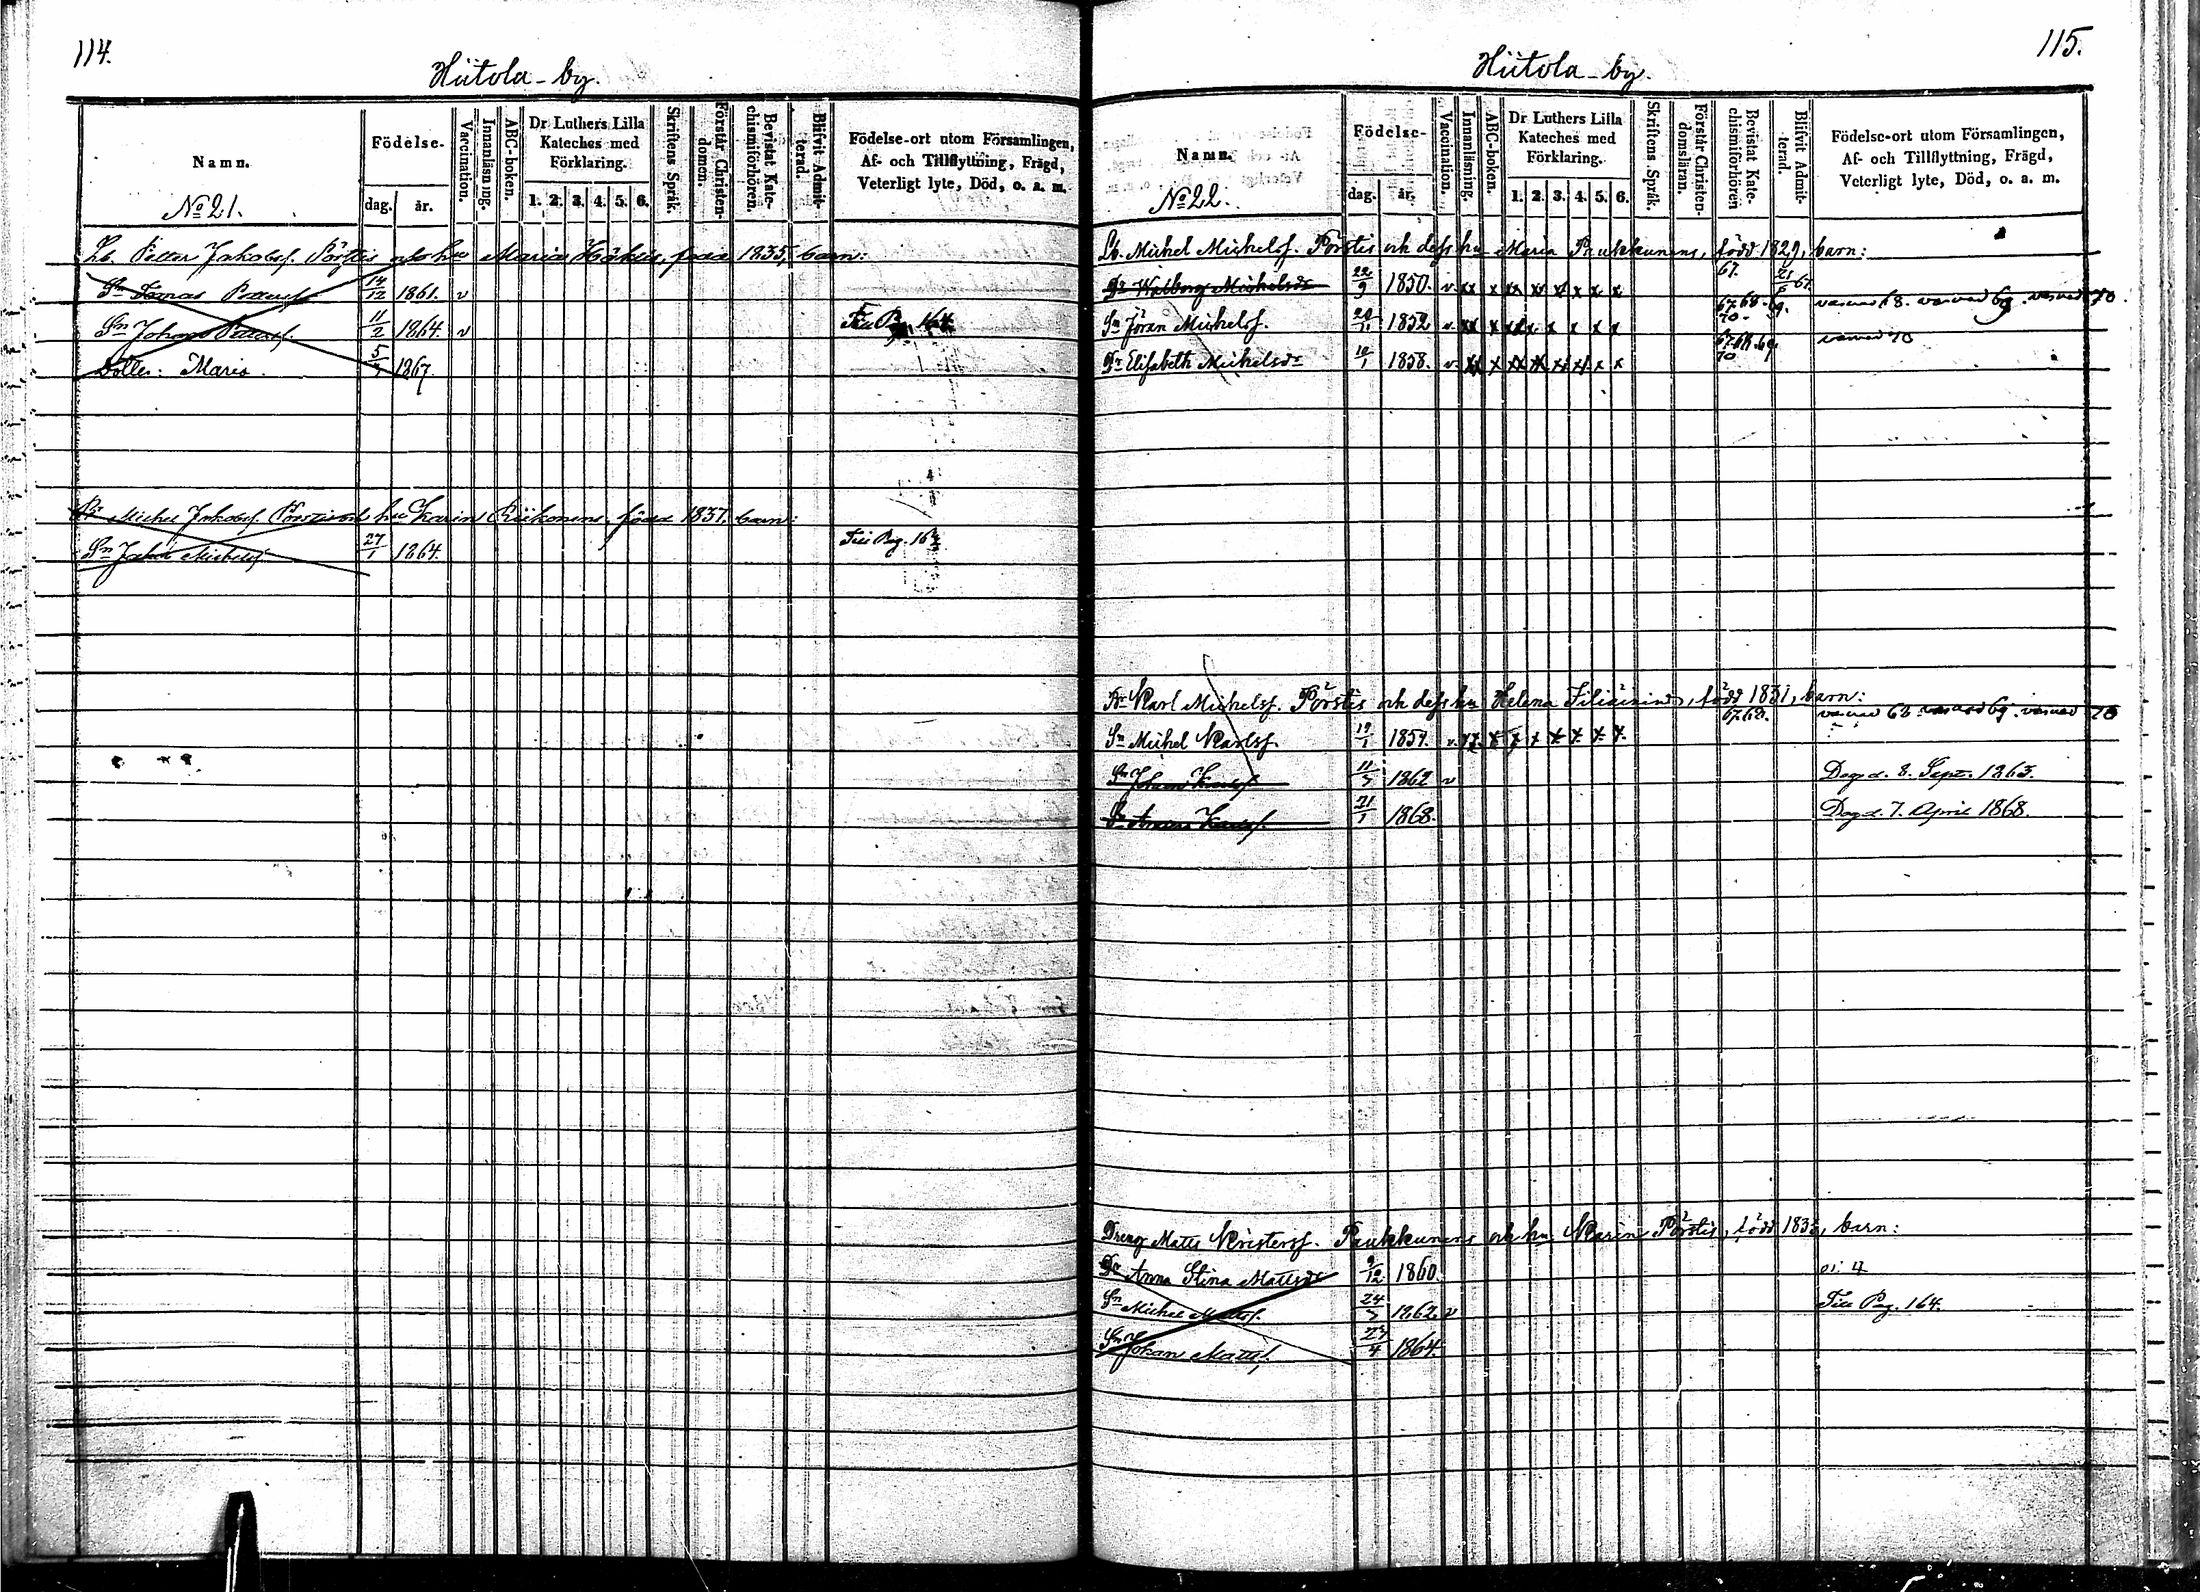 114.
Hiitola - by.
Namn.
Födelse-
dag. år.
Vaccination.
Innanläsning.
ABC-boken.
Dr Luthers Lilla Kateches med Förklaring.
1. 2. 3. 4. 5. 6.
Skriftens Språk.
Förstår Christen-domen.
Bevistat Kate-chismiförhören.
Blifvit Admit-terad.
Födelse-ort utom Församlingen,
Af- och Tillflyttning, Frägd,
Veterligt lyte, Död, o. a. m.
No 21.
Lb. Petter Jakobsf. Pörstis och hu Maria Häklis, född 1835, barn:
Sn Tomas Pettersf. 14/12 1861. v
Sn Johan Pettersf. 11/2 1864. v Till Pag. 164.
Dotter: Maria. 1867.
Br Michel Jakobsf. Pörstis och hu Karin Kiikonens, född 1837. barn:
Sn Jakob Michelsf. 27/1 1864. Till Pag. 164
115.
Hiitola - by.
Namn.
Födelse-
dag. år.
Vaccination.
Innanläsning.
ABC-boken.
Dr Luthers Lilla Kateches med Förklaring.
1. 2. 3. 4. 5. 6.
Skriftens Språk.
Förstår Christen-domsläran.
Bevistat Kate-chismiförhören
Blifvit Admit-terad.
Födelse-ort utom Församlingen,
Af- och Tillflyttning, Frägd,
Veterligt lyte, Död, o. a. m.
No 22.
Lb. Michel Michelsf. Pörstis och defs hu Maria Paukkunens, född 1829, barn:
Dr Walborg Michelsdr 22/9 1850. v. xx x xx x x x x x 67. 21/6 67.
Sn Jöran Michelsf. 1852 v. xx x xx x x x x x 67. 68. 69. 70.
Dr Elisabeth Michelsdr 10/1 1858. v. xx x xx xx x x x x 67. 68. 69. 70
Br Karl Michelsf. Pörstis och defs hu Helena född 1831, barn:
Sn Michel Karlsf. 1857. v. 67. 68.
Sn Johan Karlsf. 1862 v Dog d. 8. Sept. 1863.
Sn Karlsf. 21/1 1868. Dog d. 7. April 1868.
Dreng Matts Kristersf. Paukkunens och hu Karin Pörstis, född barn:
Dr Anna Stina Mattsdr 9/12 1860.
Sn Michel Mattsf. 1862. v Till Pag. 164.
Sn Johan Mattsf. 27/4 1864.